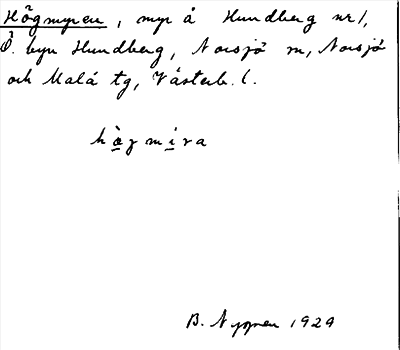 Högmyren, myr å Hundberg nr 1,
Ö. byn Hundberg, Norsjö sn, Norsjö
och Malå tg, Västerb. l.
hògmira
B. Nygren 1929